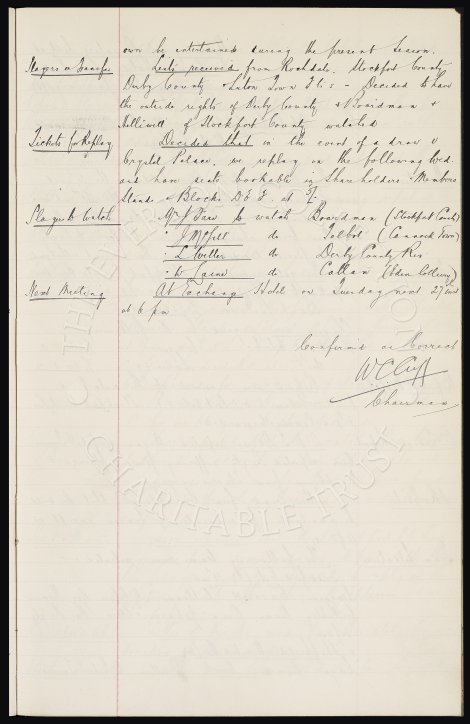 own be entertained during the present season.
Players on Transfer Lists received from Rochdale, Stockport County
Derby County & Luton Town F.C's - Decided to have
the outside rights of Derby County & Boardman &
Halliwell of Stockport County watched
Tickets for Replay Decided that in the event of a draw v
Crystal Palace, we replay on the following Wed.
and have seats bookable in Shareholders, Members
Stand & Blocks D & E. at 5/-
Players to Watch Mr J Fare to watch Boardman (Stockport County)
" do Talbot (Cannock Town)
" do Derby County Res
" do (Eden Colliery)
Next Meeting At Exchange Hotel on Tuesday next 27th inst
at 6 pm
Confirmed as Correct
W.C. Cuff
Chairman
THE EVERTON
CHARITABLE TRUST